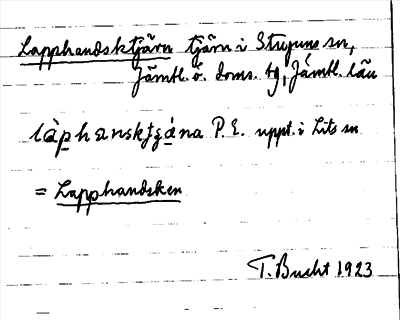 Lapphandsktjärn tjärn i Stuguns sn,
Jämtl. ö. doms. tg, Jämtl. län
P. E. uppt. i Lits sn
= Lapphandsken
T. Bucht 1923